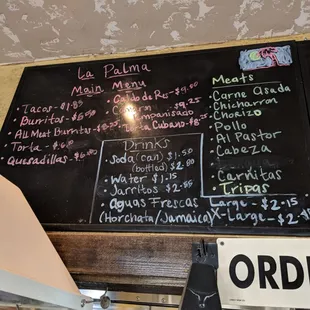 La Palma
Main Menu
Tacos - $1.85
Burritos - $6.50
All Meat Burritos -
Torta - $6.
Quesadillas - $6.
Caldo de Res - $9.00
$9.25
Torta Cubano - $8.75
Drinks
Soda (can) $1.50
(bottled) $2.00
Water - $1.15
Jarritos - $2.
Aguas Frescas
(Horchata/Jamaica)
Large - $2.
X-Large - $2.
Meats
Carne Asada
Chicharron
Chorizo
Pollo
Al Pastor
Cabeza
Carnitas
Tripas
ORD